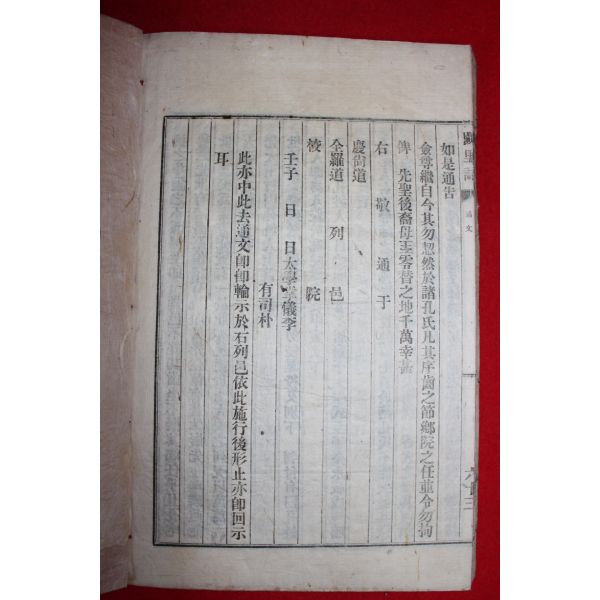 闕里誌
通文
六十三
如是通告
僉尊繼自今其勿恝然於諸孔氏凡其序齒之節鄕院之任並令勿拘
俾 先聖後裔毋至零替之地千萬幸甚
右 敬 通 于
慶尙道
全羅道 列 邑
校 院
壬子 月 日太學掌儀李
有司朴
此亦中此去通文卽卽輪示於右列邑依此施行後形止亦卽回示
耳